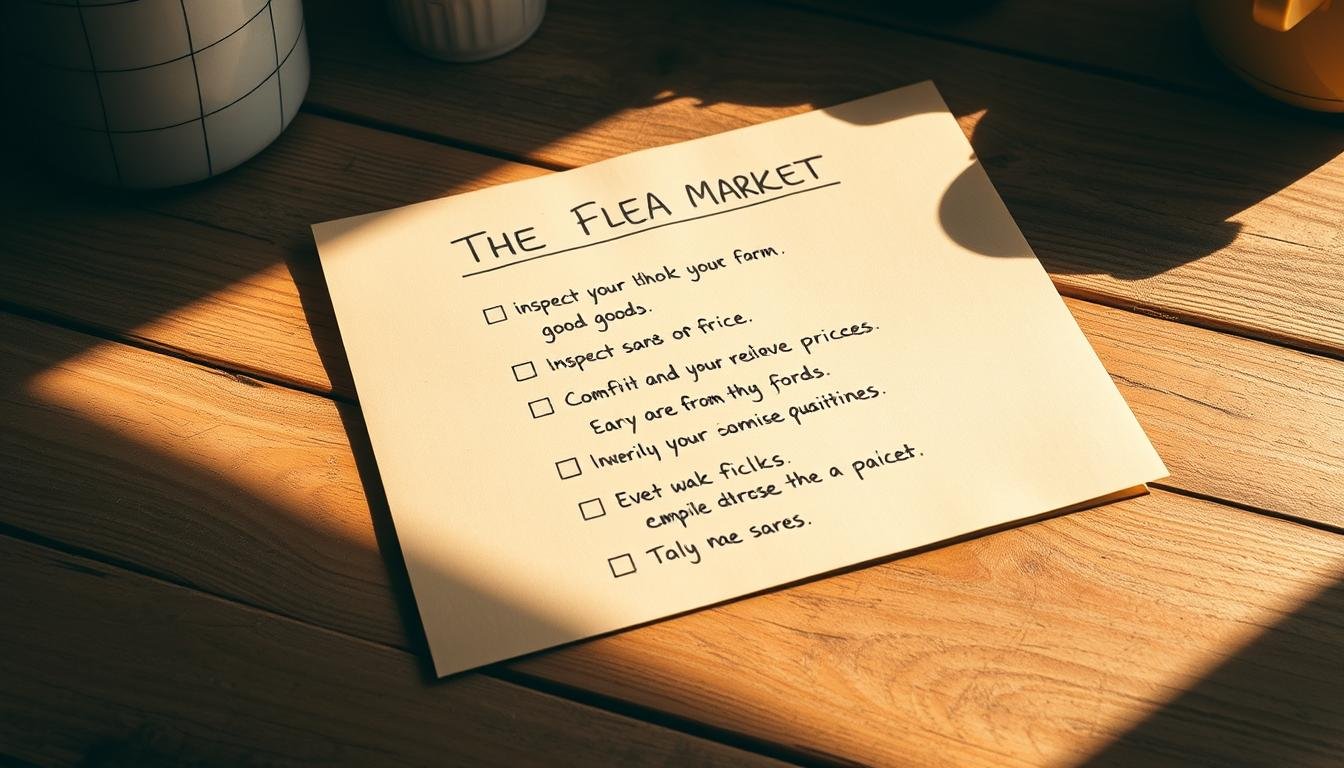 THE FLEA MARKET
inspect your your farm.
good goods.
Inspect sans or frice.
Comfiit and your reileve priccες.
Eary are from thy fords.
Inwerily your comise qusiitines.
Evet wak ficlks.
empile dtrcse the a paicet.
Taly nae sares.